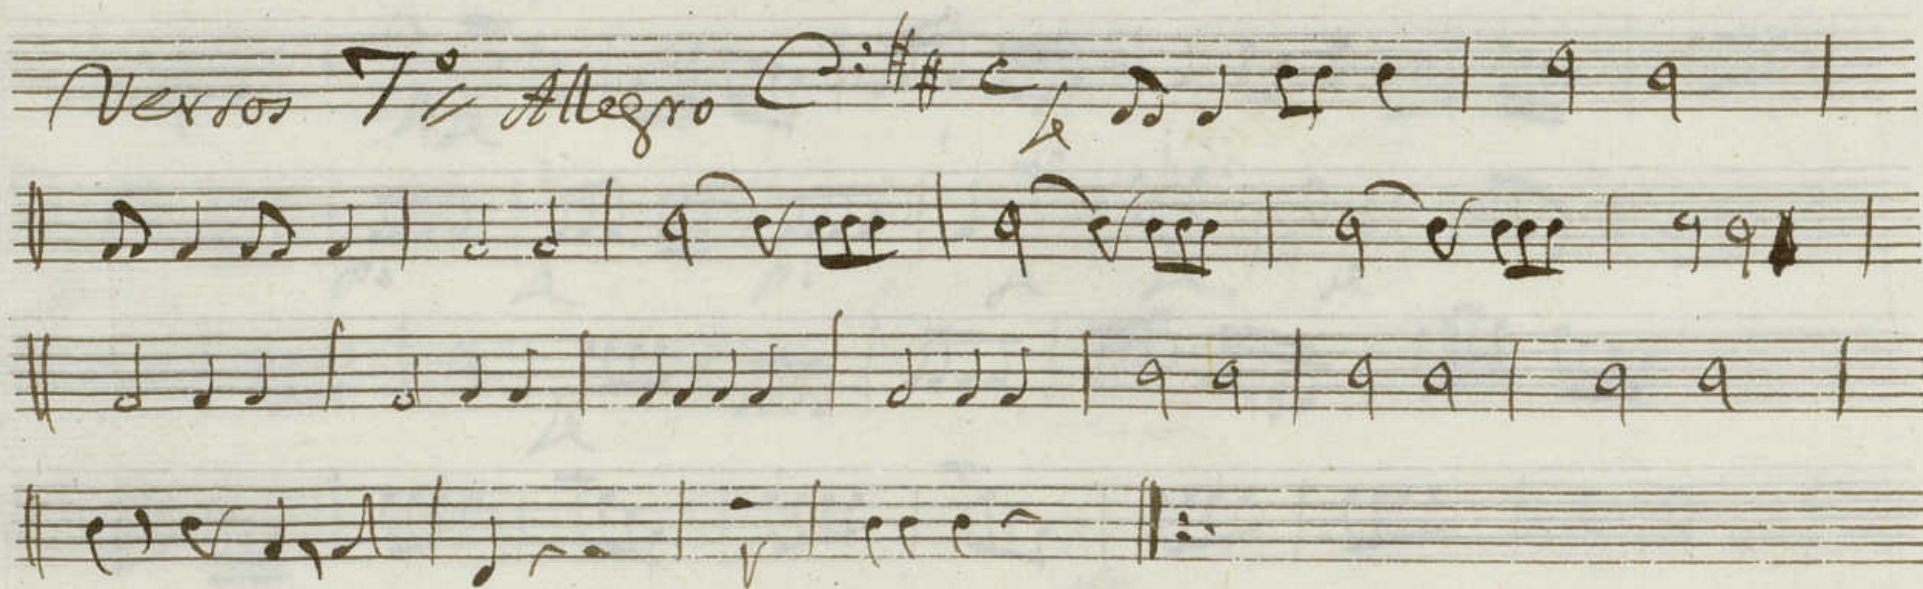 Versos 7º Allegro